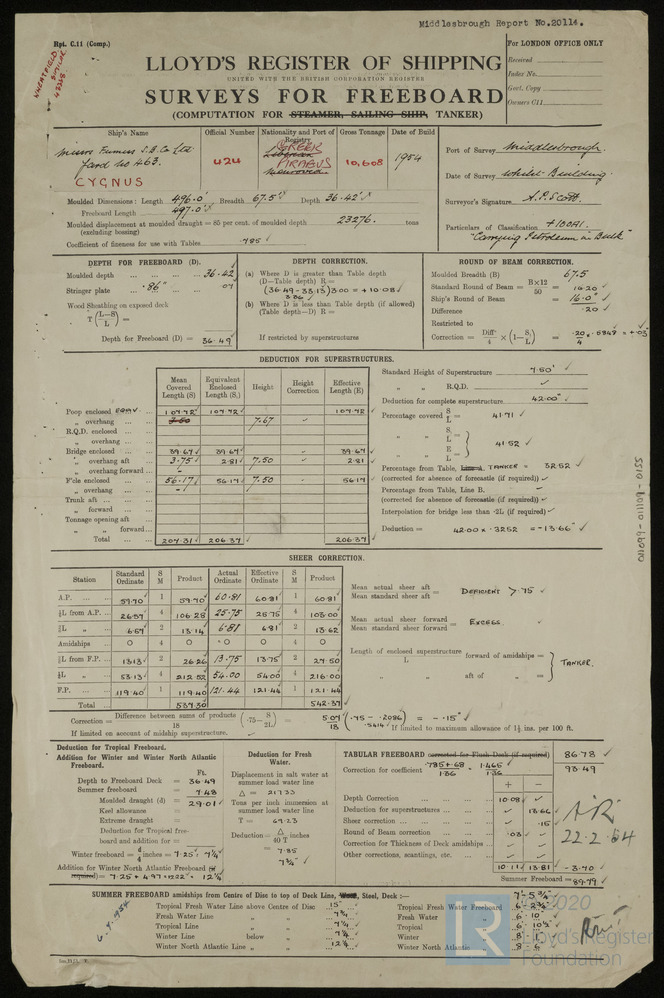 Middlesbrough Report No. 20114.
Rpt. C.11 (Comp.)
For LONDON OFFICE ONLY
WHEATFIELD
SIMILAR
LLOYD'S REGISTER OF SHIPPING
UNITED WITH THE BRITISH CORPORATION REGISTER
SURVEYS FOR FREEBOARD
(COMPUTATION FOR STEAMER, SAILING SHIP, TANKER)
Received
Index No.
Govt. Copy
Owners C11
Ship's Name
Official Number
Nationality and Port of Registry
Gross Tonnage
Date of Build
Messrs Furness S.B. Co Ltd
Yard No 463.
CYGNUS
424
GREEK
PIRAEUS
10,608
1954
Port of Survey Middlesbrough.
Date of Survey Whilst Building
Surveyor's Signature A.P. Scott.
Particulars of Classification +100A1.
"Carrying Petroleum in Bulk"
Moulded Dimensions: Length 496.0' Breadth 67.5' Depth 36.42'
Freeboard Length 497.0'
Moulded displacement at moulded draught = 85 per cent. of moulded depth 23276. tons
(excluding bossing)
Coefficient of fineness for use with Tables .785
DEPTH FOR FREEBOARD (D).
Moulded depth 36.42
Stringer plate .86" .07
Wood Sheathing on exposed deck
T (L-S / L) =
Depth for Freeboard (D) = 36.49
DEPTH CORRECTION.
(a) Where D is greater than Table depth
(D—Table depth) R =
(36.49 - 33.13) 3.00 = + 10.08
3.36
(b) Where D is less than Table depth (if allowed)
(Table depth—D) R =
If restricted by superstructures
ROUND OF BEAM CORRECTION.
Moulded Breadth (B) 67.5
Standard Round of Beam = B×12 / 50 = 16.20
Ship's Round of Beam = 16.0"
Difference .20
Restricted to
Correction = Diff / 4 × (1 - S₁/L) = .20 / 4 × .5848 = +.03
DEDUCTION FOR SUPERSTRUCTURES.
Mean Covered Length (S)
Equivalent Enclosed Length (S₁)
Height
Height Correction
Effective Length (E)
Poop enclosed 107.72 107.72 107.72
„ overhang 7.67
R.Q.D. enclosed
„ overhang
Bridge enclosed 39.67 39.67 39.67
„ overhang aft 3.75 2.81 7.50 2.81
„ overhang forward
F'cle enclosed 56.17 56.17 7.50 56.17
„ overhang
Trunk aft
„ forward
Tonnage opening aft
„ „ forward
Total 207.31 206.37 206.37
Standard Height of Superstructure 7.50'
„ „ R.Q.D.
Deduction for complete superstructure 42.00"
Percentage covered S/L = 41.71
„ „ S₁/L =
„ „ E/L = 41.52
Percentage from Table, Line A. TANKER = 32.52
(corrected for absence of forecastle (if required))
Percentage from Table, Line B.
(corrected for absence of forecastle (if required))
Interpolation for bridge less than ·2L (if required)
Deduction = 42.00 × .3252 = -13.66"
SHEER CORRECTION.
Station
Standard Ordinate
S M
Product
Actual Ordinate
Effective Ordinate
S M
Product
A.P. 59.70 1 59.70 60.81 60.81 1 60.81
⅙L from A.P. 26.57 4 106.28 25.75 25.75 4 103.00
⅓L „ 6.57 2 13.14 6.81 6.81 2 13.62
Amidships 0 4 0 0 0 4 0
⅓L from F.P. 13.13 2 26.26 13.75 13.75 2 27.50
⅙L „ 53.13 4 212.52 54.00 54.00 4 216.00
F.P. 119.40 1 119.40 121.44 121.44 1 121.44
Total 537.30 542.37
Mean actual sheer aft
Mean standard sheer aft = DEFICIENT > .75
Mean actual sheer forward
Mean standard sheer forward = EXCESS.
Length of enclosed superstructure / L forward of amidships =
„ „ aft of „ =
TANKER.
Correction = Difference between sums of products / 18 (·75 - S/2L) = 5.07 / 18 (.75 - .2086) = -.15"
.5414
If limited on account of midship superstructure.
If limited to maximum allowance of 1½ ins. per 100 ft.
Deduction for Tropical Freeboard.
Addition for Winter and Winter North Atlantic Freeboard.
Ft.
Depth to Freeboard Deck = 36.49
Summer freeboard = 7.48
Moulded draught (d) = 29.01
Keel allowance =
Extreme draught =
Deduction for Tropical freeboard and addition for =
Winter freeboard = d/4 inches = 7.25" 7¼"
Addition for Winter North Atlantic Freeboard (if required) = 7.25 + 4.97 = 12.22" = 12¼"
Deduction for Fresh Water.
Displacement in salt water at summer load water line
Δ = 21733
Tons per inch immersion at summer load water line
T = 69.23
Deduction = Δ / 40 T inches
= 7.85
7¾"
TABULAR FREEBOARD corrected for Flush Deck (if required) 86.78
Correction for coefficient .785 + .68 / 1.36 = 1.465 / 1.36 93.49
+ -
Depth Correction 10.08
Deduction for superstructures 13.66
Sheer correction .15
Round of Beam correction .03
Correction for Thickness of Deck amidships
Other corrections, scantling, etc.
10.11 13.81 -3.70
Summer Freeboard = 89.79
22.2.54
SUMMER FREEBOARD amidships from Centre of Disc to top of Deck Line, Wood, Steel, Deck :— 7' 5¾"
Tropical Fresh Water Line above Centre of Disc 15"
Fresh Water Line „ „ 7¾
Tropical Line „ „ 7¼
Winter Line below „ 7¼
Winter North Atlantic Line „ „ 12¼
Tropical Fresh Water Freeboard
Fresh Water „ 6' 10
Tropical „ 6' 10½
Winter „ 8' 1
Winter North Atlantic „ 8' 6
LR
©2020
Lloyd's Register
Foundation
011099-011108-0155